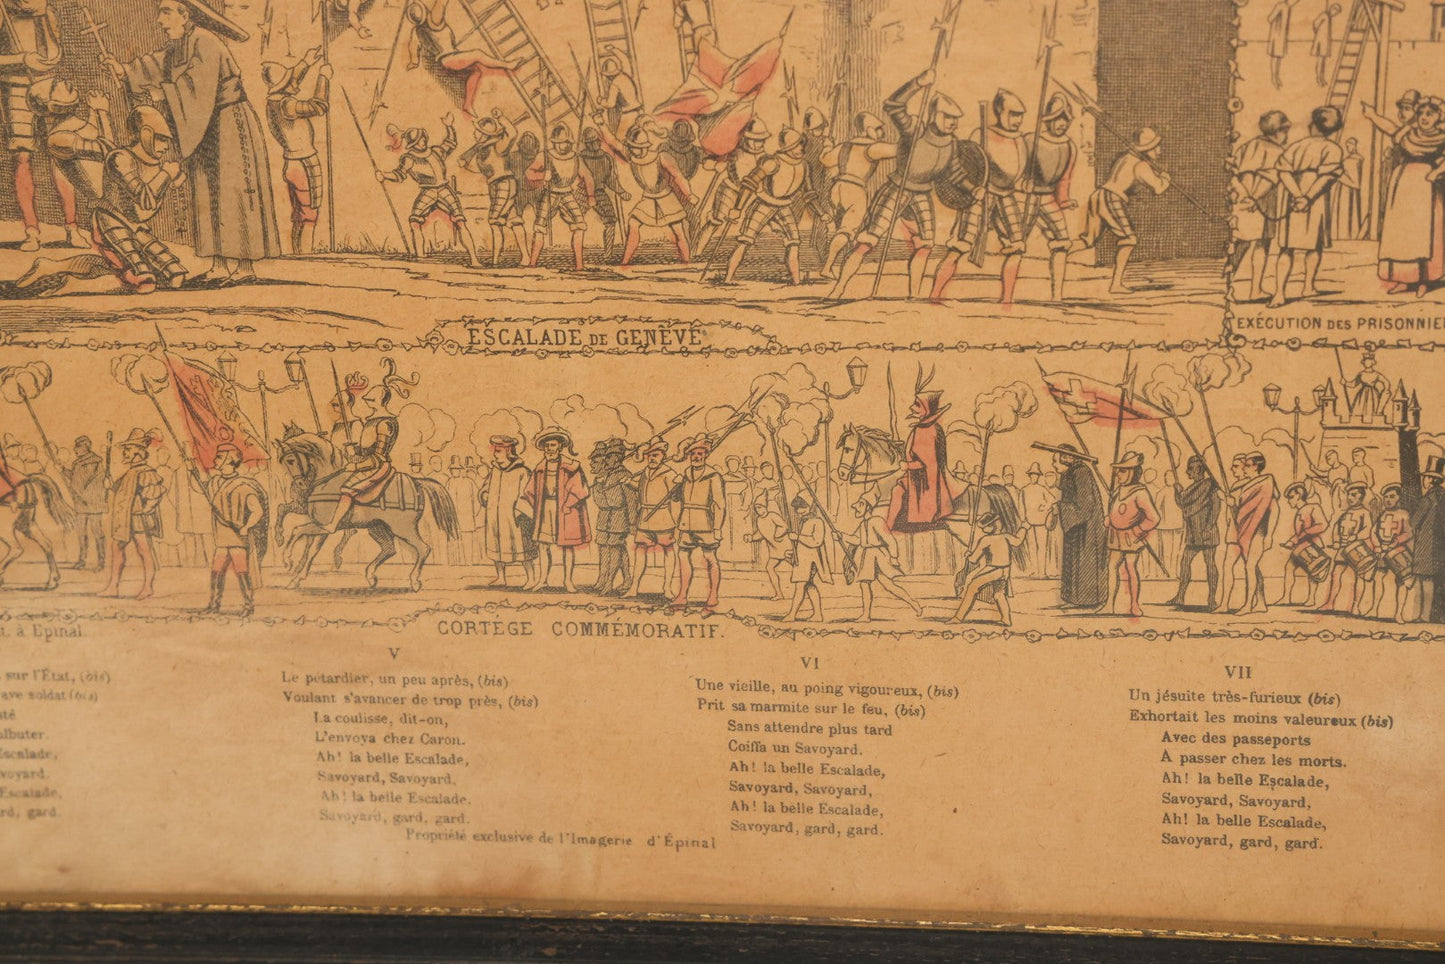 ESCALADE DE GENÈVE
EXÉCUTION DES PRISONNIE
CORTÉGE COMMÉMORATIF.
t. à Epinal.
sur l'État, (bis)
ave soldat (bis)
té
lbuter.
Escalade,
voyard.
Escalade,
rd, gard.
V
Le pétardier, un peu après, (bis)
Voulant s'avancer de trop près, (bis)
La coulisse, dit-on,
L'envoya chez Caron.
Ah! la belle Escalade,
Savoyard, Savoyard,
Ah! la belle Escalade.
Savoyard, gard, gard.
VI
Une vieille, au poing vigoureux, (bis)
Prit sa marmite sur le feu, (bis)
Sans attendre plus tard
Coiffa un Savoyard.
Ah! la belle Escalade,
Savoyard, Savoyard,
Ah! la belle Escalade,
Savoyard, gard, gard.
VII
Un jésuite très-furieux (bis)
Exhortait les moins valeureux (bis)
Avec des passeports
A passer chez les morts.
Ah! la belle Escalade,
Savoyard, Savoyard,
Ah! la belle Escalade,
Savoyard, gard, gard.
Propriété exclusive de l'Imagerie d'Épinal